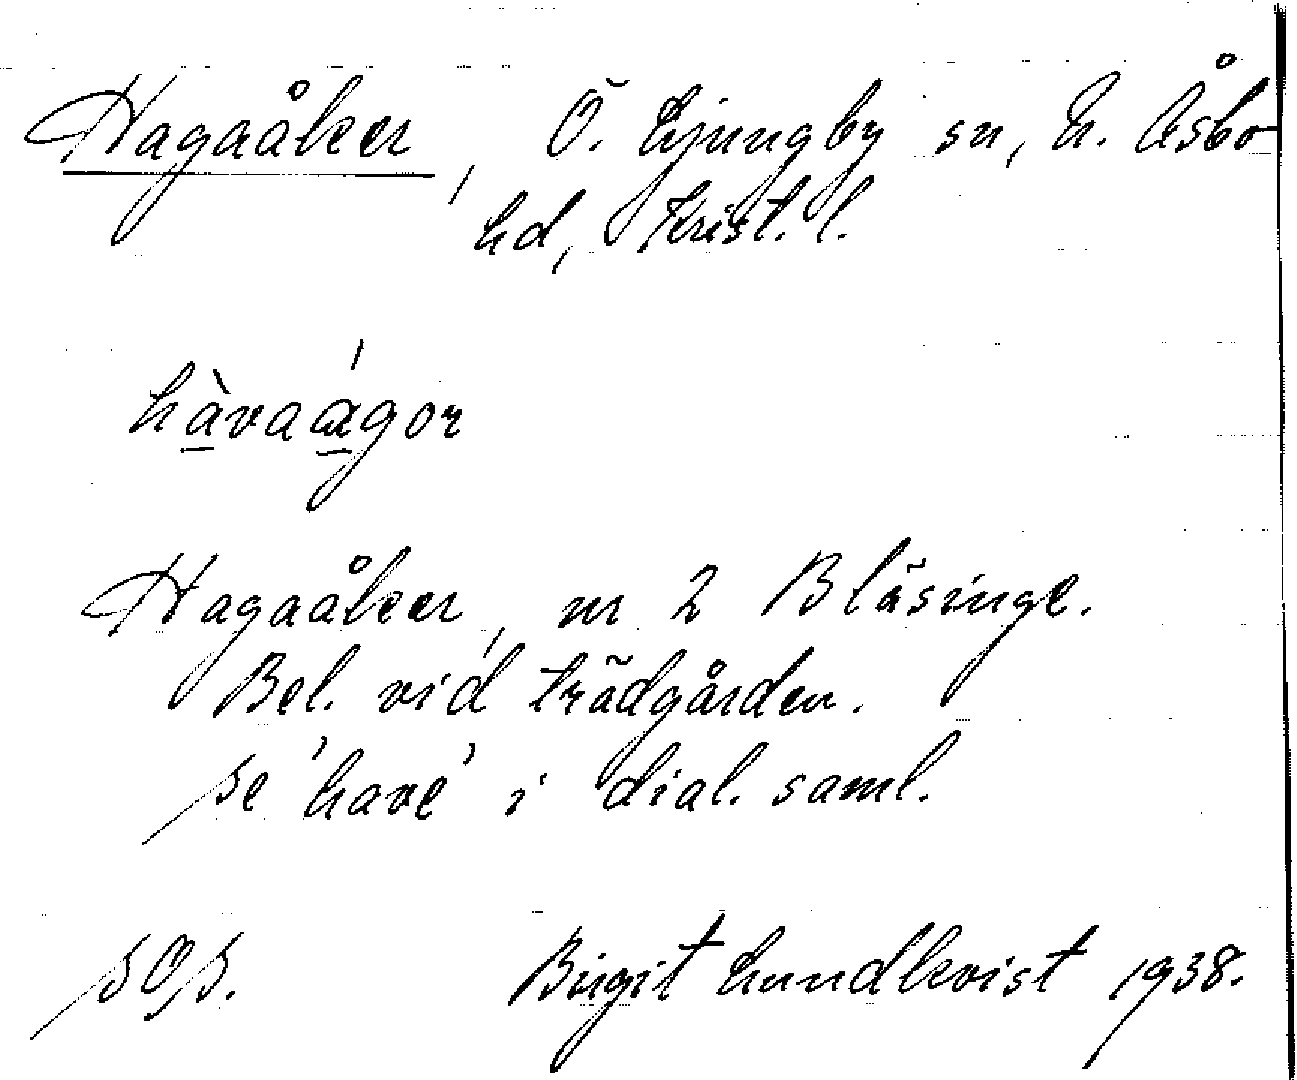 Hagaåker, Ö. Ljungby sn, N. Åsbo
hd, Krist. l.
hàvaágor
Hagaåker, nr 2 Bläsinge.
Bel. vid trädgården.
Se 'have' i dial. saml.
SOS.
Birgit Lundkvist 1938.